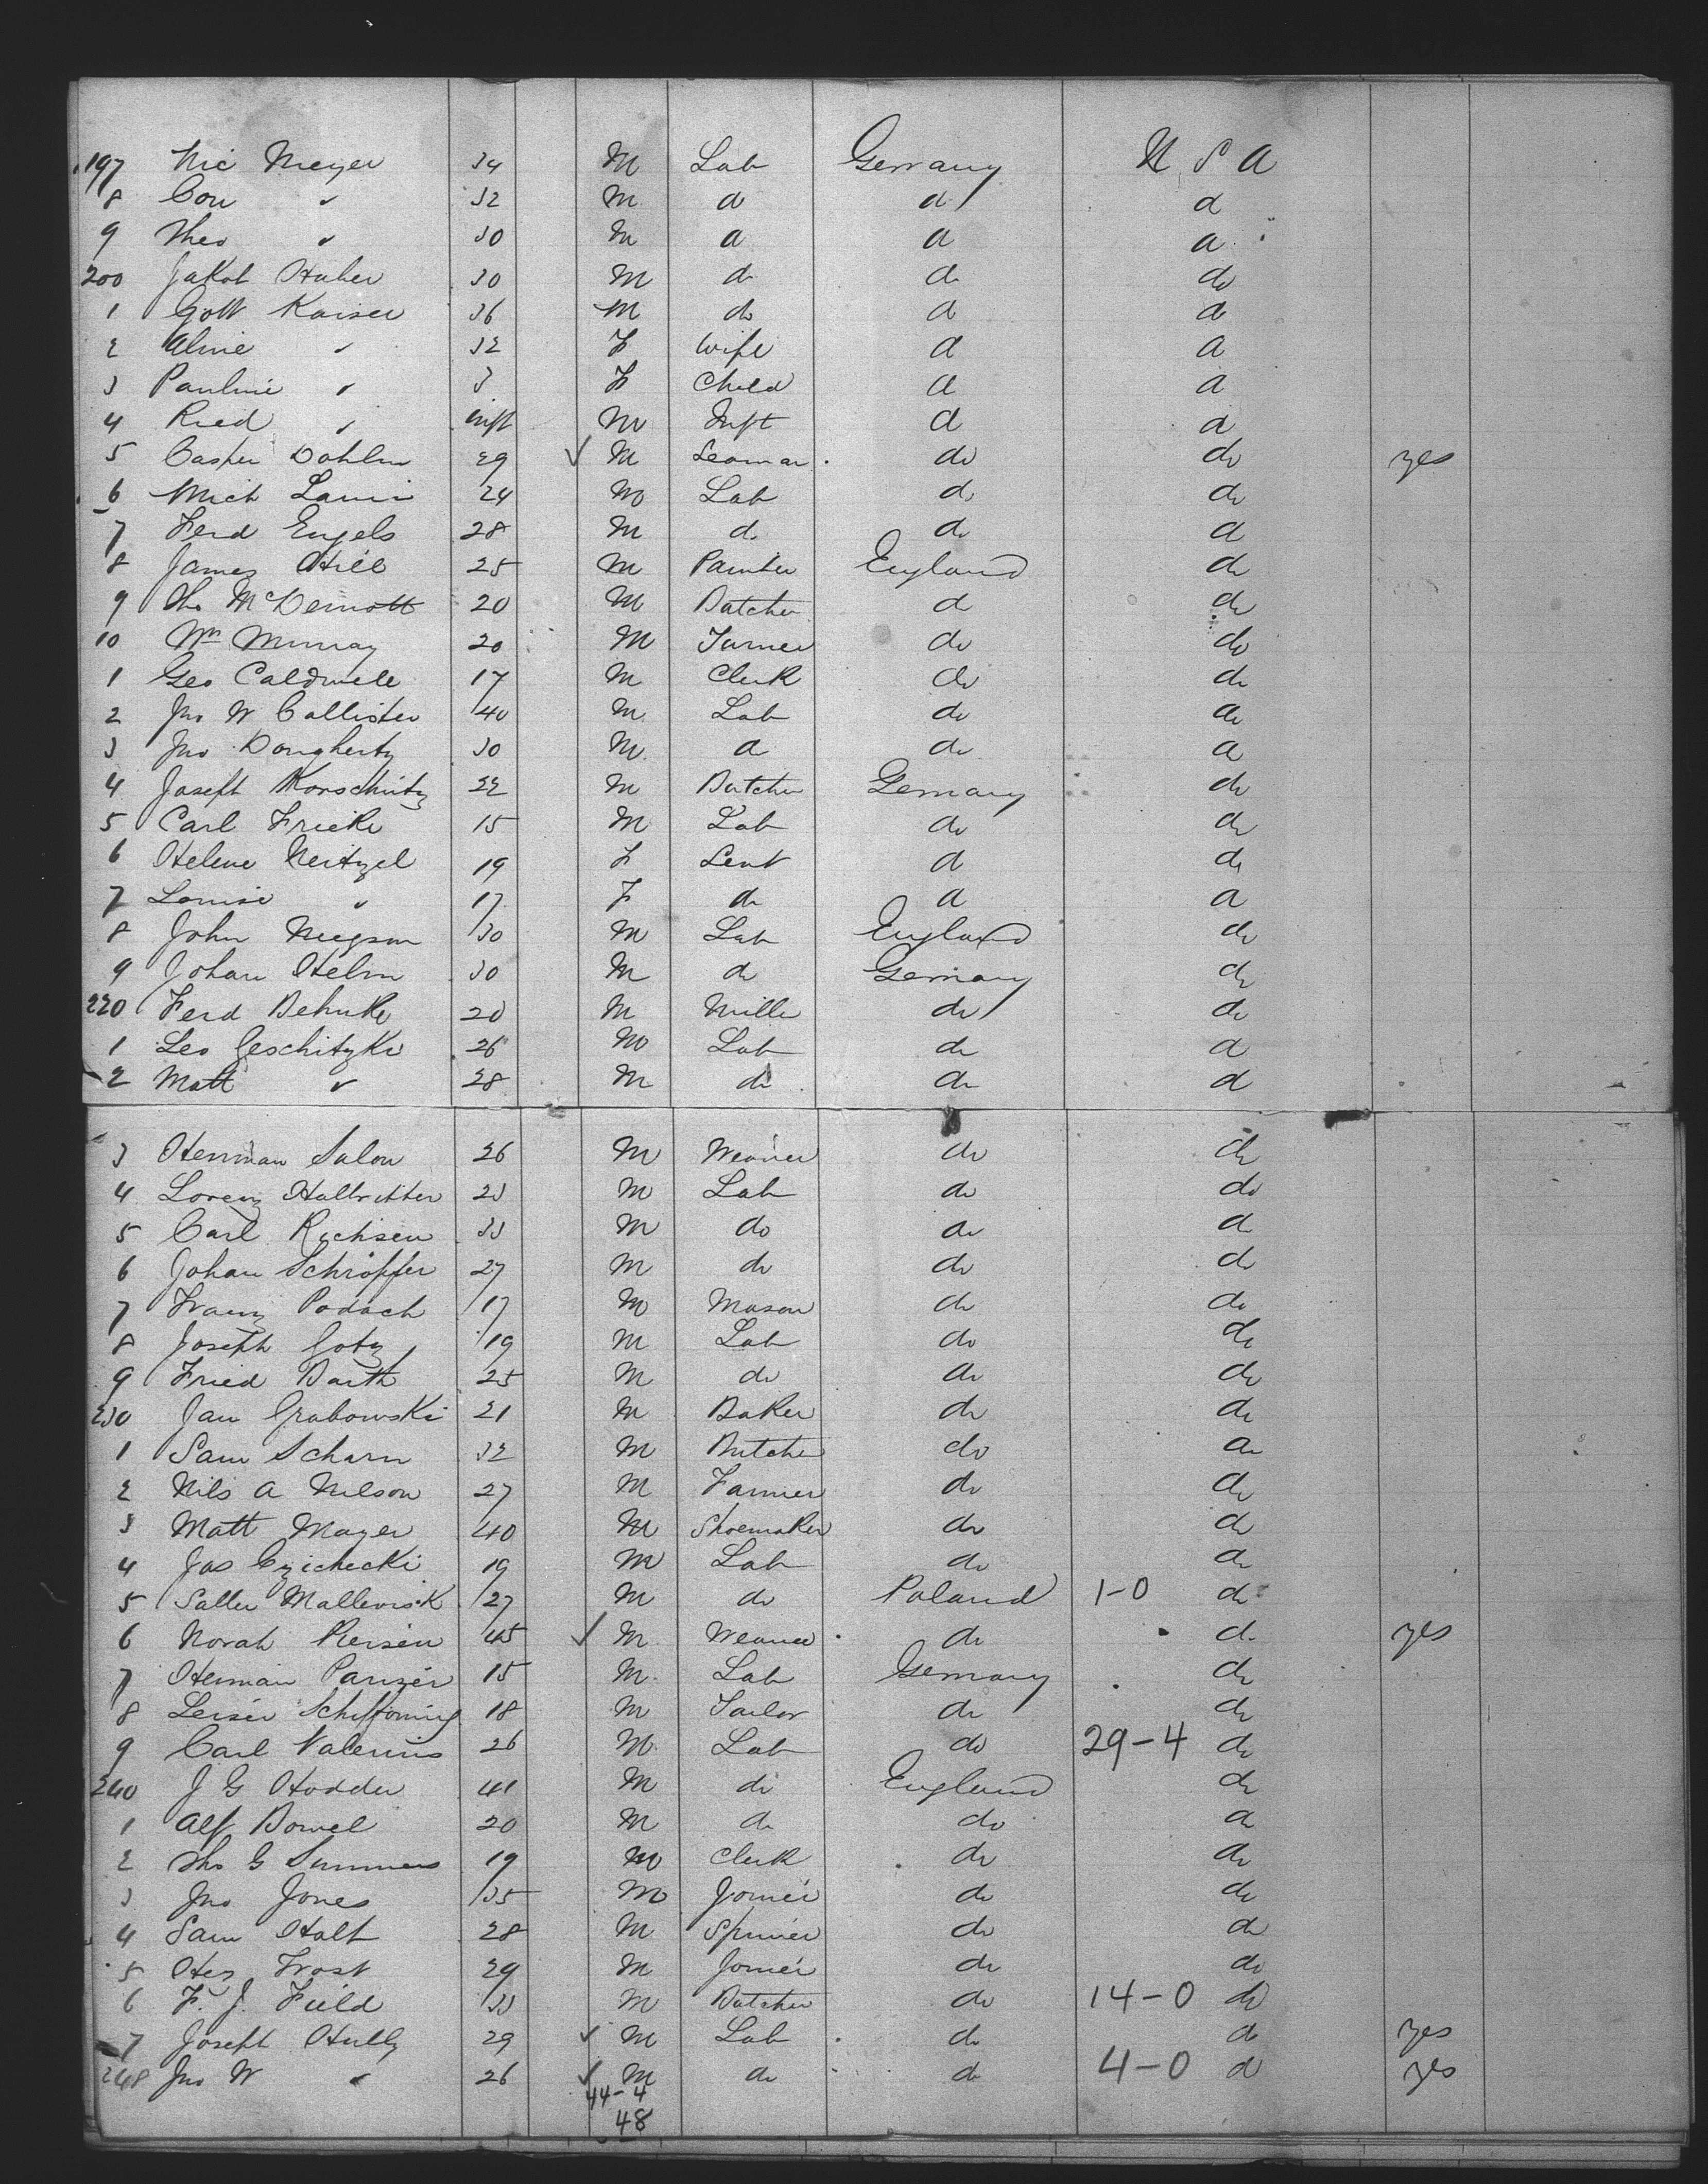 197 Nic Meyer 34 M Lab Germany U S A
8 Con " 32 M d d d
9 Theo " 30 M d d d
200 Jakob Huber 30 M d d do
1 Gott Kaiser 36 M do d d
2 Aline " 32 F Wife d d
3 Pauline " 3 F Child d d
4 Ried " inft M Inft d d
5 Casper Dohlen 29 ✓ M Seaman do do yes
6 Mich 24 M Lab do do
7 Ferd Engels 28 M do do d
8 James Hill 25 M Painter England do
9 Tho McDermott 20 M Butcher d do
10 Wm Murray 20 M Turner do do
1 Geo Caldwell 17 M Clerk do do
2 Jno W Callister 40 M Lab do do
3 Jno Dougherty 30 M d do d
4 Joseph Korschutz 22 M Butcher Germany do
5 Carl Fricke 15 M Lab do do
6 Helene Neitzel 19 F Sevt d do
7 Louise " 17 F do d d
8 John Megson 30 M Lab England do
9 Johan Helm 30 M do Germany do
220 Ferd Behnke 20 M Miller do do
1 Leo Geschitzki 26 M Lab do d
2 Matt " 28 M do do d
3 Herrman Salon 26 M Weaver do do
4 Lorenz Halbritter 23 M Lab do do
5 Carl 33 M do do d
6 Johan Schröpfer 27 M do do do
7 Franz Podach 17 M Mason do do
8 Joseph Gotz 19 M Lab do do
9 Fried Barth 25 M do do do
230 Jan Grabowski 21 M Baker do do
1 Sam Scharn 32 M Butcher do do
2 Nils A Nelson 27 M Farmer do do
3 Matt Mayer 40 M Shoemaker do do
4 Jas Czichecki 19 M Lab do do
5 27 M do Poland 1-0 do
6 Norah 45 ✓ M Weaver do do yes
7 Herman Panzer 15 M Lab Germany do
8 18 M Tailor do do
9 Carl Valerius 26 M Lab do 29-4 do
240 J G Hodder 41 M do England do
1 Alf Bowel 20 M do do do
2 Tho G Summers 19 M Clerk do do
3 Jno Jones 35 M Joiner do do
4 Sam Holt 28 M Spinner do do
5 Hez Frost 29 M Joiner do do
6 F. J. Field 33 M Butcher do 14-0 do
7 Joseph Hully 29 ✓ M Lab do do yes
248 Jno W " 26 ✓ M do do 4-0 d yes
44-4
48